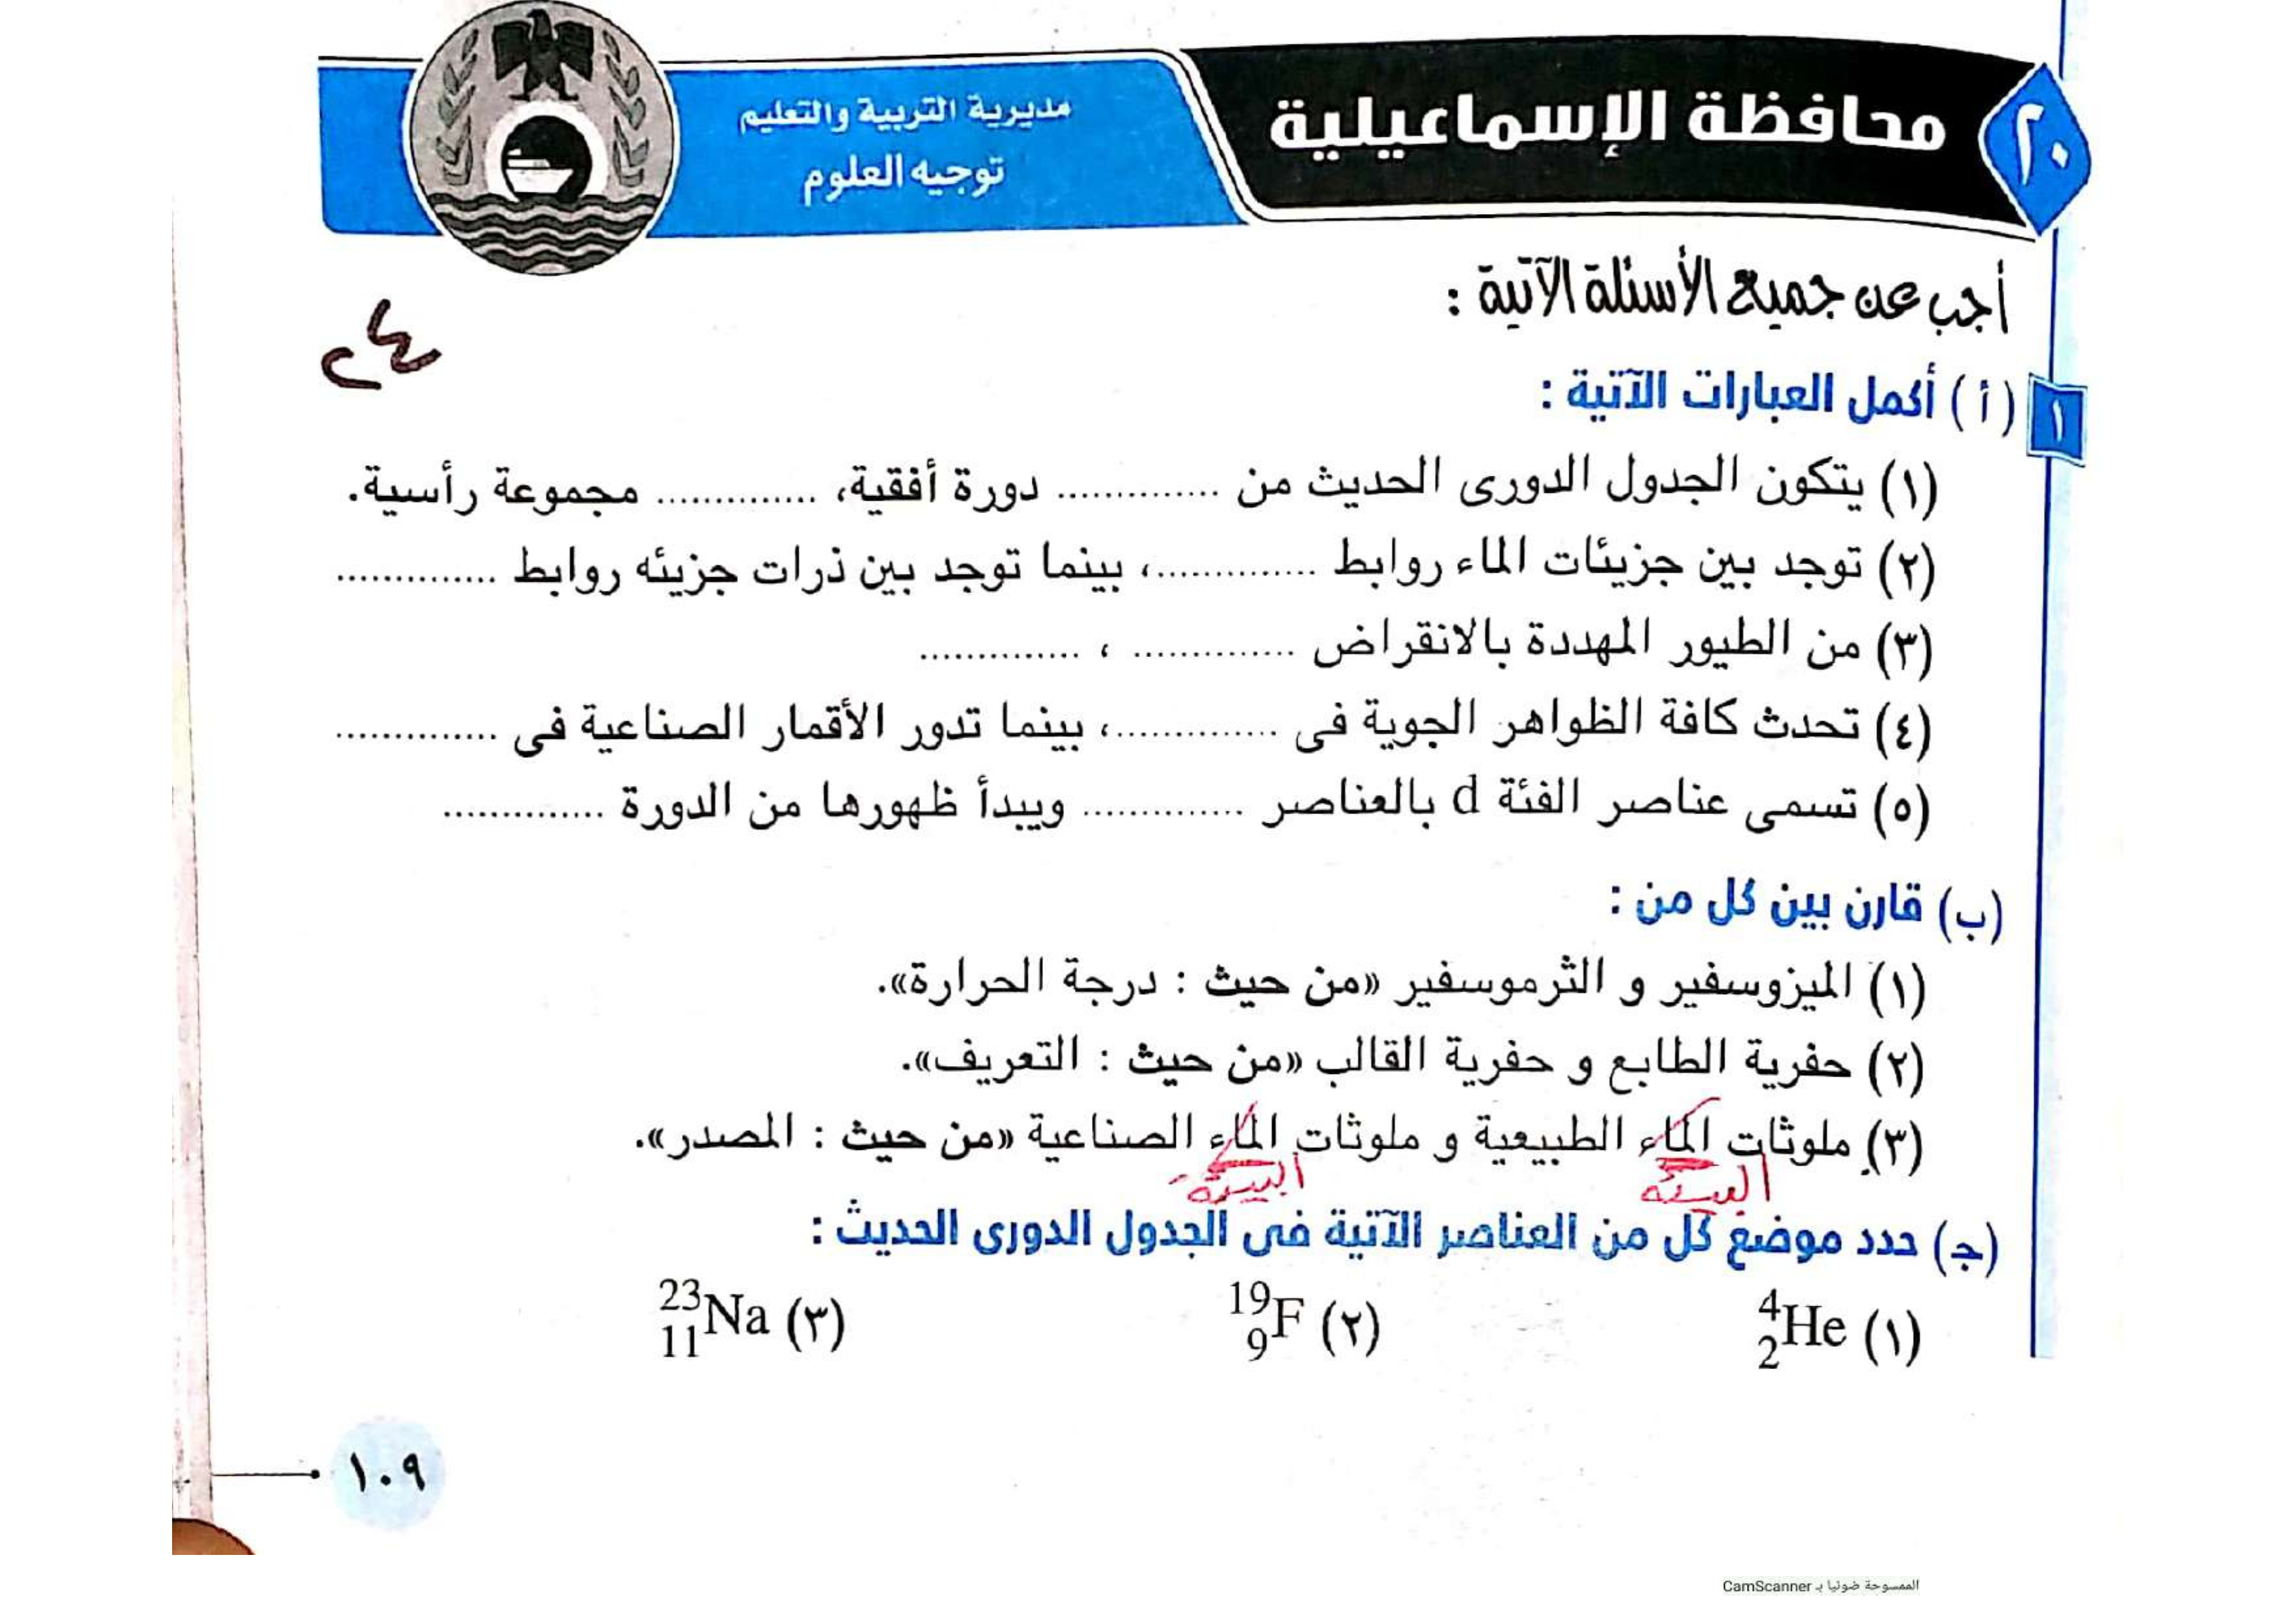 ٢٠ محافظة الإسماعيلية
مديرية التربية والتعليم
توجيه العلوم
أجب عن جميع الأسئلة الآتية :
٢٤
١ (أ) أكمل العبارات الآتية :
(١) يتكون الجدول الدورى الحديث من .............. دورة أفقية، .............. مجموعة رأسية.
(٢) توجد بين جزيئات الماء روابط ..............، بينما توجد بين ذرات جزيئه روابط ..............
(٣) من الطيور المهددة بالانقراض .............. ، ..............
(٤) تحدث كافة الظواهر الجوية فى ..............، بينما تدور الأقمار الصناعية فى ..............
(٥) تسمى عناصر الفئة d بالعناصر .............. ويبدأ ظهورها من الدورة ..............
(ب) قارن بين كل من :
(١) الميزوسفير و الثرموسفير «من حيث : درجة الحرارة».
(٢) حفرية الطابع و حفرية القالب «من حيث : التعريف».
(٣) ملوثات الماء الطبيعية و ملوثات الماء الصناعية «من حيث : المصدر».
البيئة البيئة
(ج) حدد موضع كل من العناصر الآتية فى الجدول الدورى الحديث :
(١) ⁴₂He (٢) ¹⁹₉F (٣) ²³₁₁Na
١٠٩
الممسوحة ضوئيا بـ CamScanner